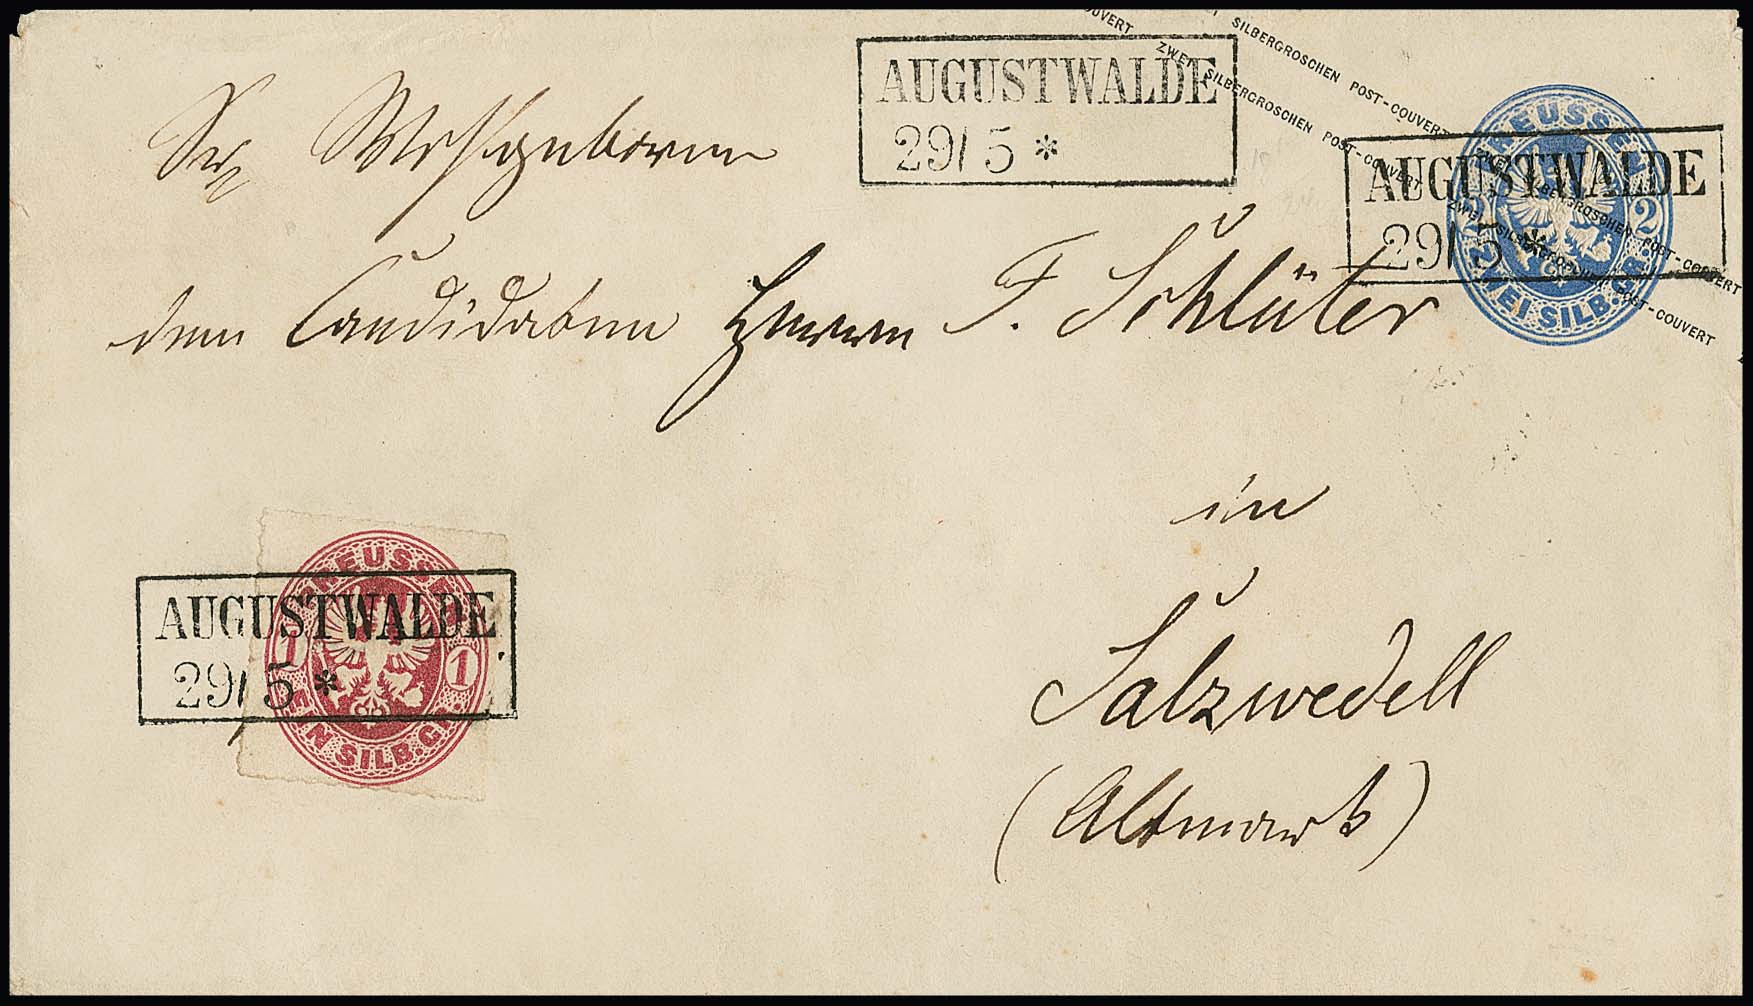 SILBERGROSCHEN POST-COUVERT
ZWEI SILBERGROSCHEN POST-COUVERT
ZWEI SILBERGROSCHEN POST-COUVERT
ZWEI SILBERGROSCHEN POST-COUVERT
AUGUSTWALDE
29/5 *
PREUSSEN
2 2
ZWEI SILB. GR.
AUGUSTWALDE
29/5 *
Sr Wohlgeboren
dem Candidaten Herrn F. Schlüter
in
Salzwedell
(Altmark)
PREUSSEN
1 1
EIN SILB. GR.
AUGUSTWALDE
29/5 *